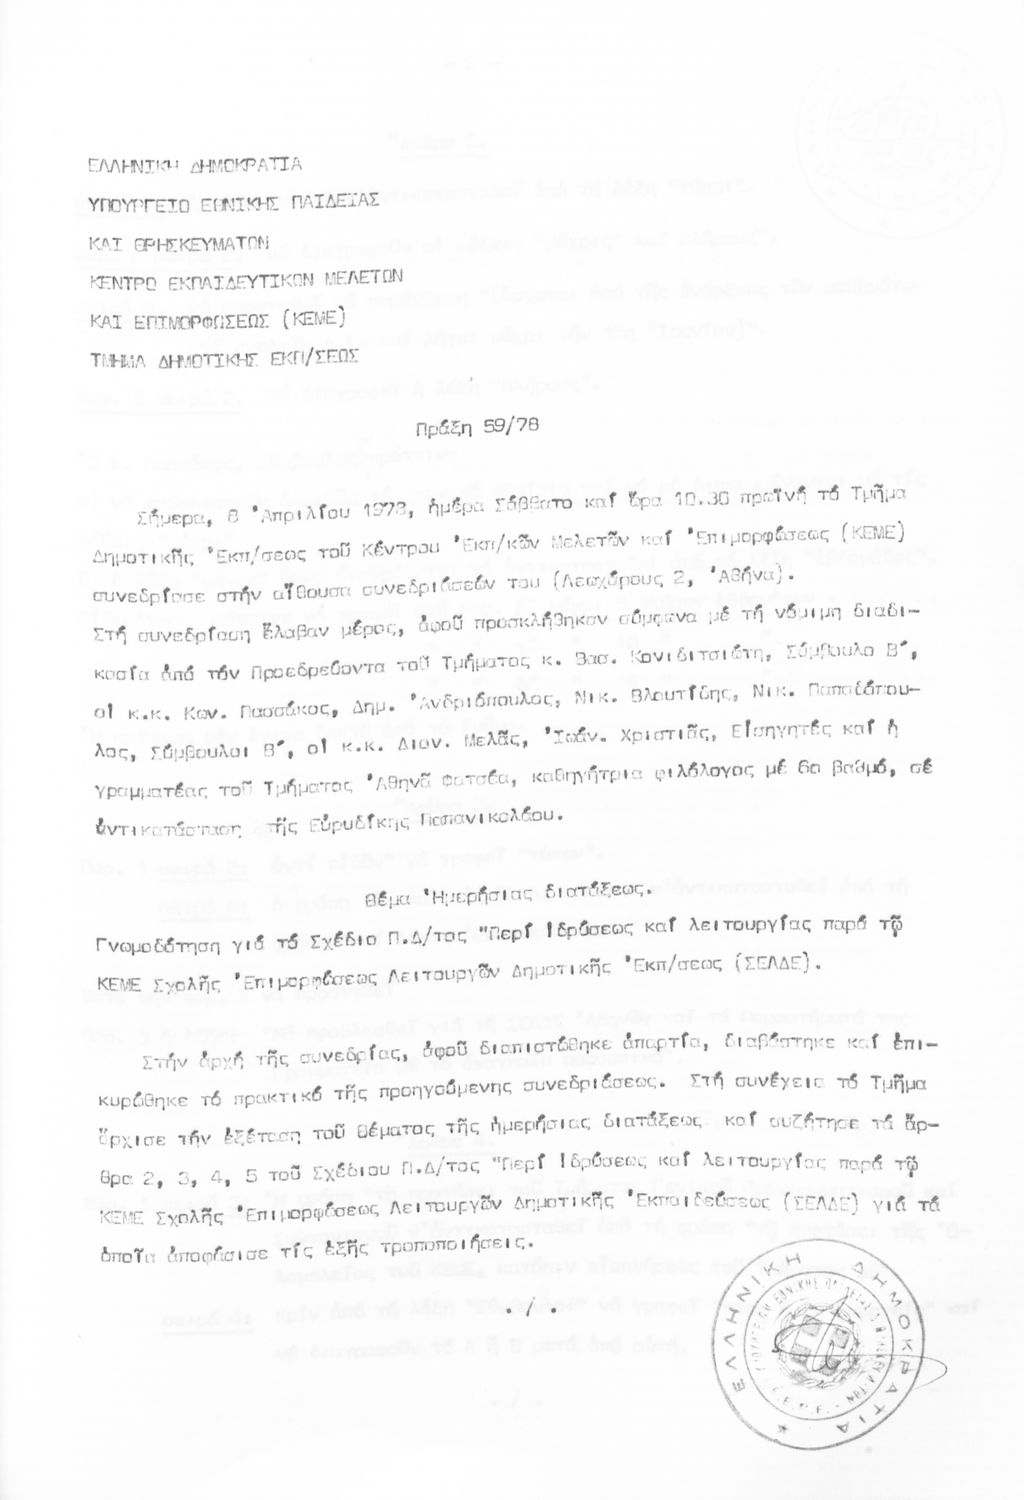 ΕΛΛΗΝΙΚΗ ΔΗΜΟΚΡΑΤΙΑ
ΥΠΟΥΡΓΕΙΟ ΕΘΝΙΚΗΣ ΠΑΙΔΕΙΑΣ
ΚΑΙ ΘΡΗΣΚΕΥΜΑΤΩΝ
ΚΕΝΤΡΟ ΕΚΠΑΙΔΕΥΤΙΚΩΝ ΜΕΛΕΤΩΝ
ΚΑΙ ΕΠΙΜΟΡΦΩΣΕΩΣ (ΚΕΜΕ)
ΤΜΗΜΑ ΔΗΜΟΤΙΚΗΣ ΕΚΠ/ΣΕΩΣ
Πράξη 59/78
Σήμερα, 8 Ἀπριλίου 1978, ἡμέρα Σάββατο καί ὥρα 10.30 πρωϊνή τό Τμῆμα
Δημοτικῆς Ἐκπ/σεως τοῦ Κέντρου Ἐκπ/κῶν Μελετῶν καί Ἐπιμορφώσεως (ΚΕΜΕ)
συνεδρίασε στήν αἴθουσα συνεδριάσεών του (Λεωχάρους 2, Ἀθήνα).
Στή συνεδρίαση ἔλαβαν μέρος, ἀφοῦ προσκλήθηκαν σύμφωνα μέ τή νόμιμη διαδι-
κασία ἀπό τόν Προεδρεύοντα τοῦ Τμήματος κ. Βασ. Κονιδιτσιώτη, Σύμβουλο Β΄,
οἱ κ.κ. Κων. Πασσάκος, Δημ. Ἀνδριόπουλος, Νικ. Βλουτίδης, Νικ. Παπαδόπου-
λος, Σύμβουλοι Β΄, οἱ κ.κ. Διον. Μελᾶς, Ἰωάν. Χριστιᾶς, Εἰσηγητές καί ἡ
γραμματέας τοῦ Τμήματος Ἀθηνᾶ Φατσέα, καθηγήτρια φιλόλογος μέ 6ο βαθμό, σέ
ἀντικατάσταση τῆς Εὐρυδίκης Παπανικολάου.
Θέμα Ἡμερήσιας διατάξεως.
Γνωμοδότηση γιά τό Σχέδιο Π.Δ/τος "Περί ἱδρύσεως καί λειτουργίας παρά τῷ
ΚΕΜΕ Σχολῆς Ἐπιμορφώσεως Λειτουργῶν Δημοτικῆς Ἐκπ/σεως (ΣΕΛΔΕ).
Στήν ἀρχή τῆς συνεδρίας, ἀφοῦ διαπιστώθηκε ἀπαρτία, διαβάστηκε καί ἐπι-
κυρώθηκε τό πρακτικό τῆς προηγούμενης συνεδριάσεως. Στή συνέχεια τό Τμῆμα
ἄρχισε τήν ἐξέταση τοῦ θέματος τῆς ἡμερήσιας διατάξεως καί συζήτησε τά ἄρ-
θρα 2, 3, 4, 5 τοῦ Σχέδιου Π.Δ/τος "Περί ἱδρύσεως καί λειτουργίας παρά τῷ
ΚΕΜΕ Σχολῆς Ἐπιμορφώσεως Λειτουργῶν Δημοτικῆς Ἐκπαιδεύσεως (ΣΕΛΔΕ) γιά τά
ὁποῖα ἀποφάσισε τίς ἑξῆς τροποποιήσεις.
./.
ΕΛΛΗΝΙΚΗ ΔΗΜΟΚΡΑΤΙΑ